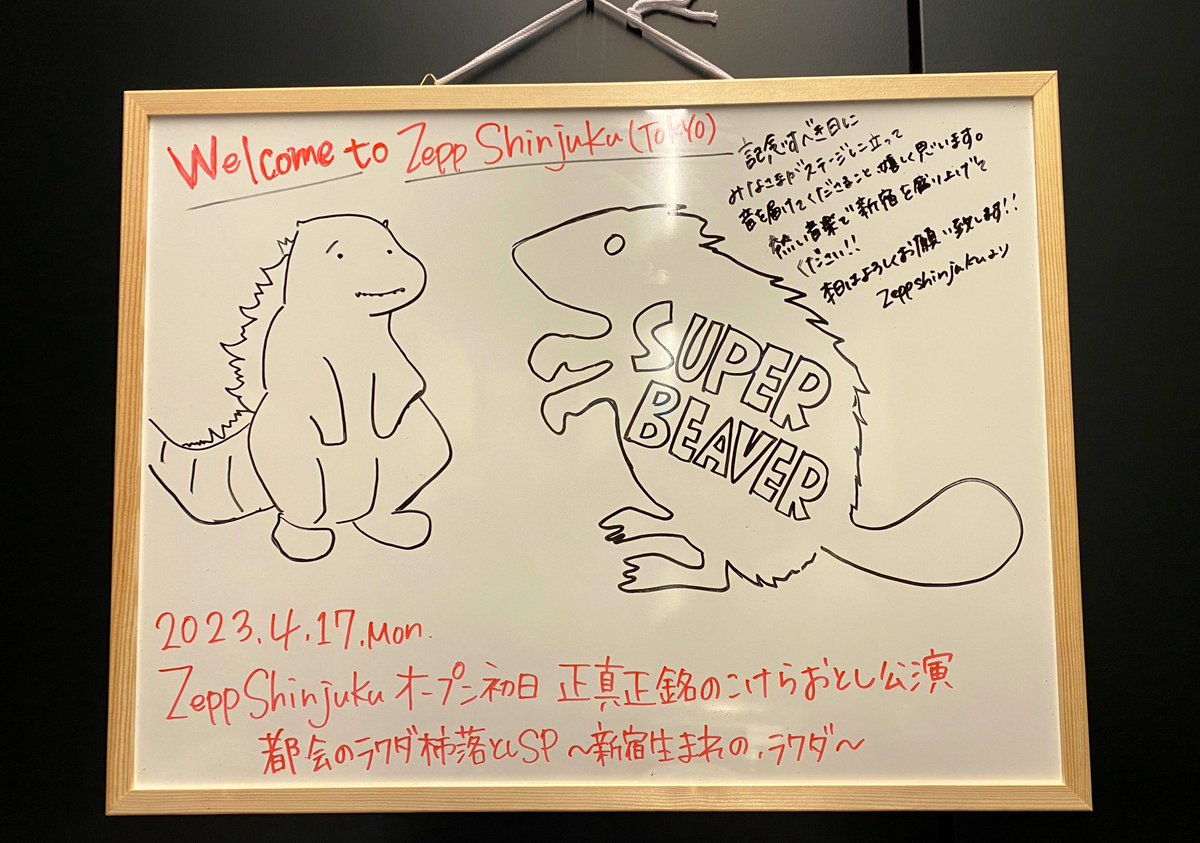 Welcome to Zepp Shinjuku (TOKYO)
記念すべき日に
みなさまがステージに立って
音を届けてくださること、嬉しく思います。
熱い音楽で新宿を盛り上げて
ください!!
本日はよろしくお願い致します!!
Zepp shinjukuより
SUPER
BEAVER
2023.4.17.Mon.
Zepp Shinjuku オープン初日 正真正銘のこけらおとし公演
都会のラクダ柿落としSP 〜新宿生まれの、ラクダ〜